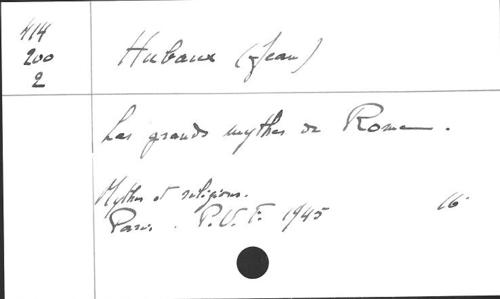 414
200
2
Hubaux (Jean)
Les grands mythes de Rome.
Mythes et religions.
Paris. P.U.F. 1945 16°